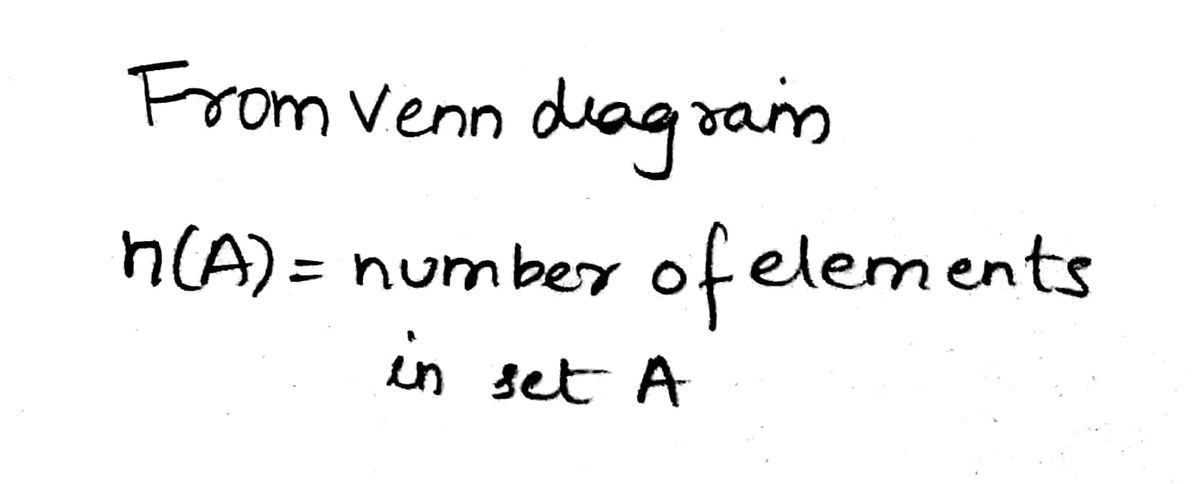 From Venn diagram
n(A) = number of elements
in set A